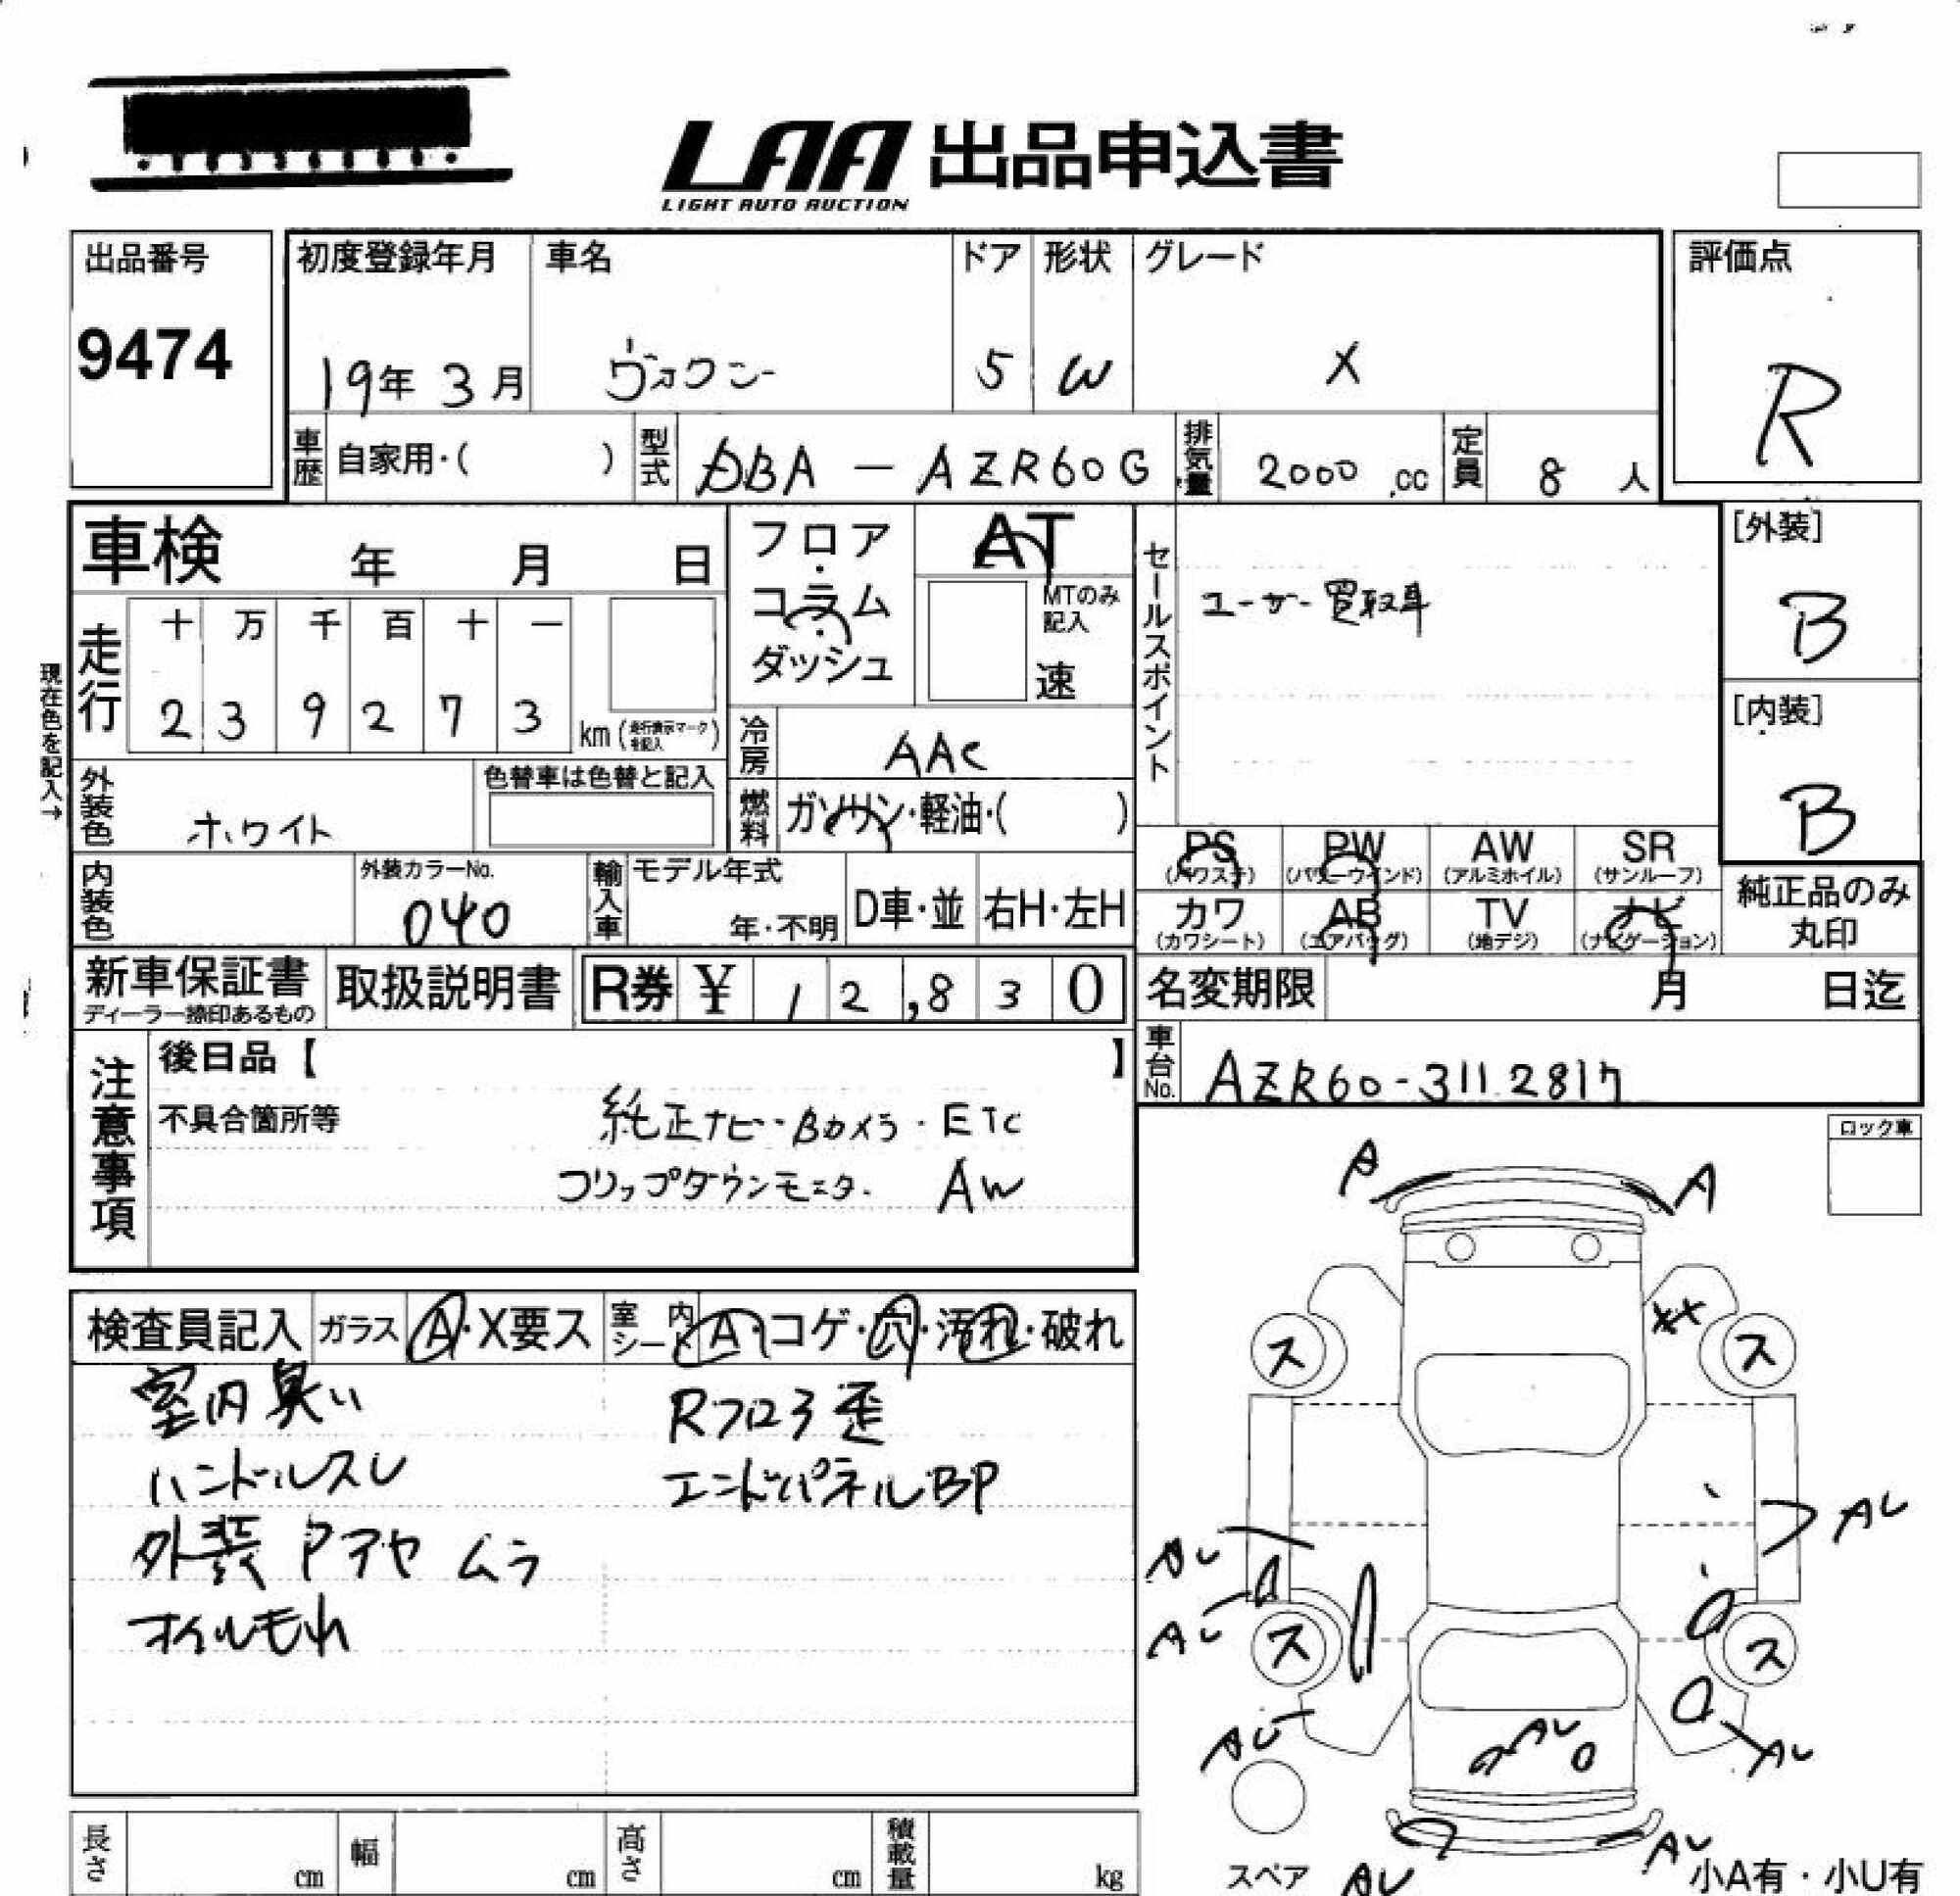 LAA 出品申込書
LIGHT AUTO AUCTION
出品番号
9474
初度登録年月
19年 3月
車名
ヴォクシー
ドア
5
形状
W
グレード
X
評価点
R
車歴
自家用・( )
型式
DBA - AZR60G
排気量
2000 cc
定員
8 人
車検 年 月 日
フロア・コラム・ダッシュ
AT
MTのみ記入
速
セールスポイント
ユーザー買取車
[外装]
B
[内装]
B
現在色を記入→
走行
十 万 千 百 十 一
2 3 9 2 7 3
km (走行表示マークを記入)
冷房
AAC
外装色
ホワイト
色替車は色替と記入
燃料
ガソリン・軽油・( )
PS (パワステ)
PW (パワーウインド)
AW (アルミホイル)
SR (サンルーフ)
カワ (カワシート)
AB (エアバッグ)
TV (地デジ)
ナビ (ナビゲーション)
純正品のみ
丸印
内装色
外装カラーNo.
040
輸入車
モデル年式
年・不明
D車・並
右H・左H
新車保証書
ディーラー捺印あるもの
取扱説明書
R券 ¥ 12,830
名変期限 月 日迄
車台No.
AZR60-3112817
注意事項
後日品【 】
不具合箇所等
純正ナビ・Bカメラ・ETC
フリップダウンモニター AW
ロック車
検査員記入
ガラス
A・X要ス
室内シート
A・コゲ・穴・汚れ・破れ
室内臭い
Rフロア歪
ハンドルスレ
エンドパネルBP
外装 Pアセ ムラ
オイルモレ
A
A
XX
ス
ス
AU
AU
AU
ス
ス
AU
AU
AU
AU
AU
スペア
小A有・小U有
長さ cm
幅 cm
高さ cm
積載量 kg